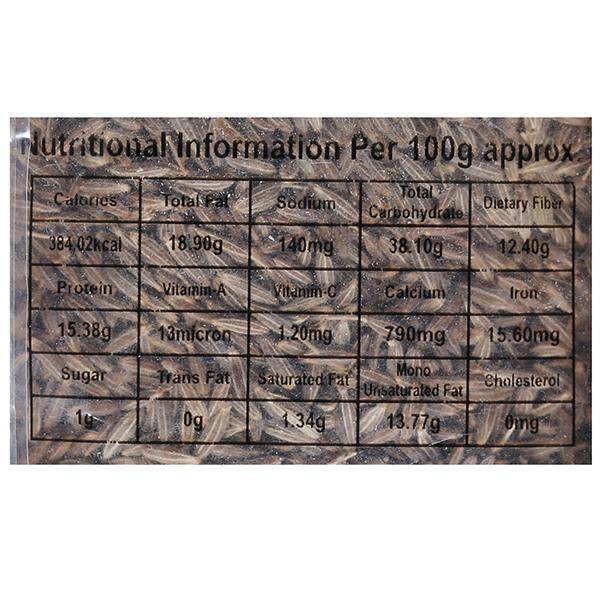 Nutritional Information Per 100g approx.
Calories Total Fat Sodium Total Carbohydrate Dietary Fiber
384.02kcal 18.90g 140mg 38.10g 12.40g
Protein Vitamin-A Vitamin-C Calcium Iron
15.38g 13micron 1.20mg 790mg 15.60mg
Sugar Trans Fat Saturated Fat Mono Unsaturated Fat Cholesterol
1g 0g 1.34g 13.77g 0mg